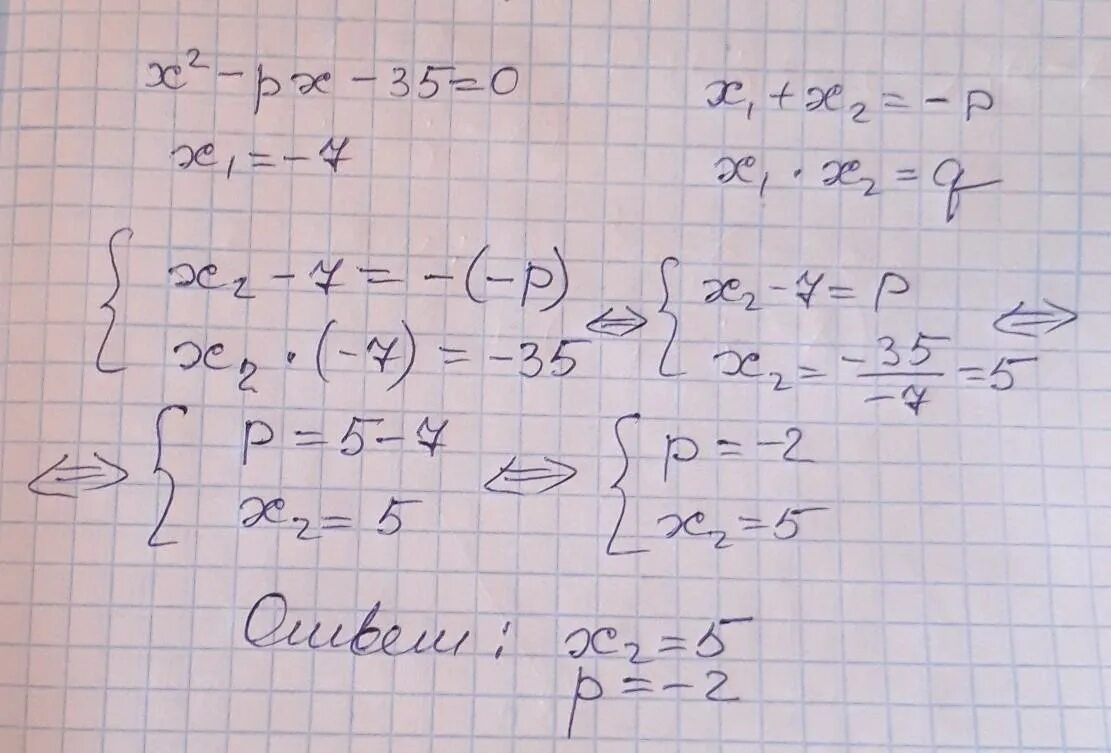 x² - px - 35 = 0
x₁ = -7
x₁ + x₂ = -p
x₁ · x₂ = q
{ x₂ - 7 = -(-p)
x₂ · (-7) = -35
⇔ { x₂ - 7 = p
x₂ = -35/-7 = 5 ⇔
⇔ { p = 5 - 7
x₂ = 5
⇔ { p = -2
x₂ = 5
Ответ: x₂ = 5
p = -2